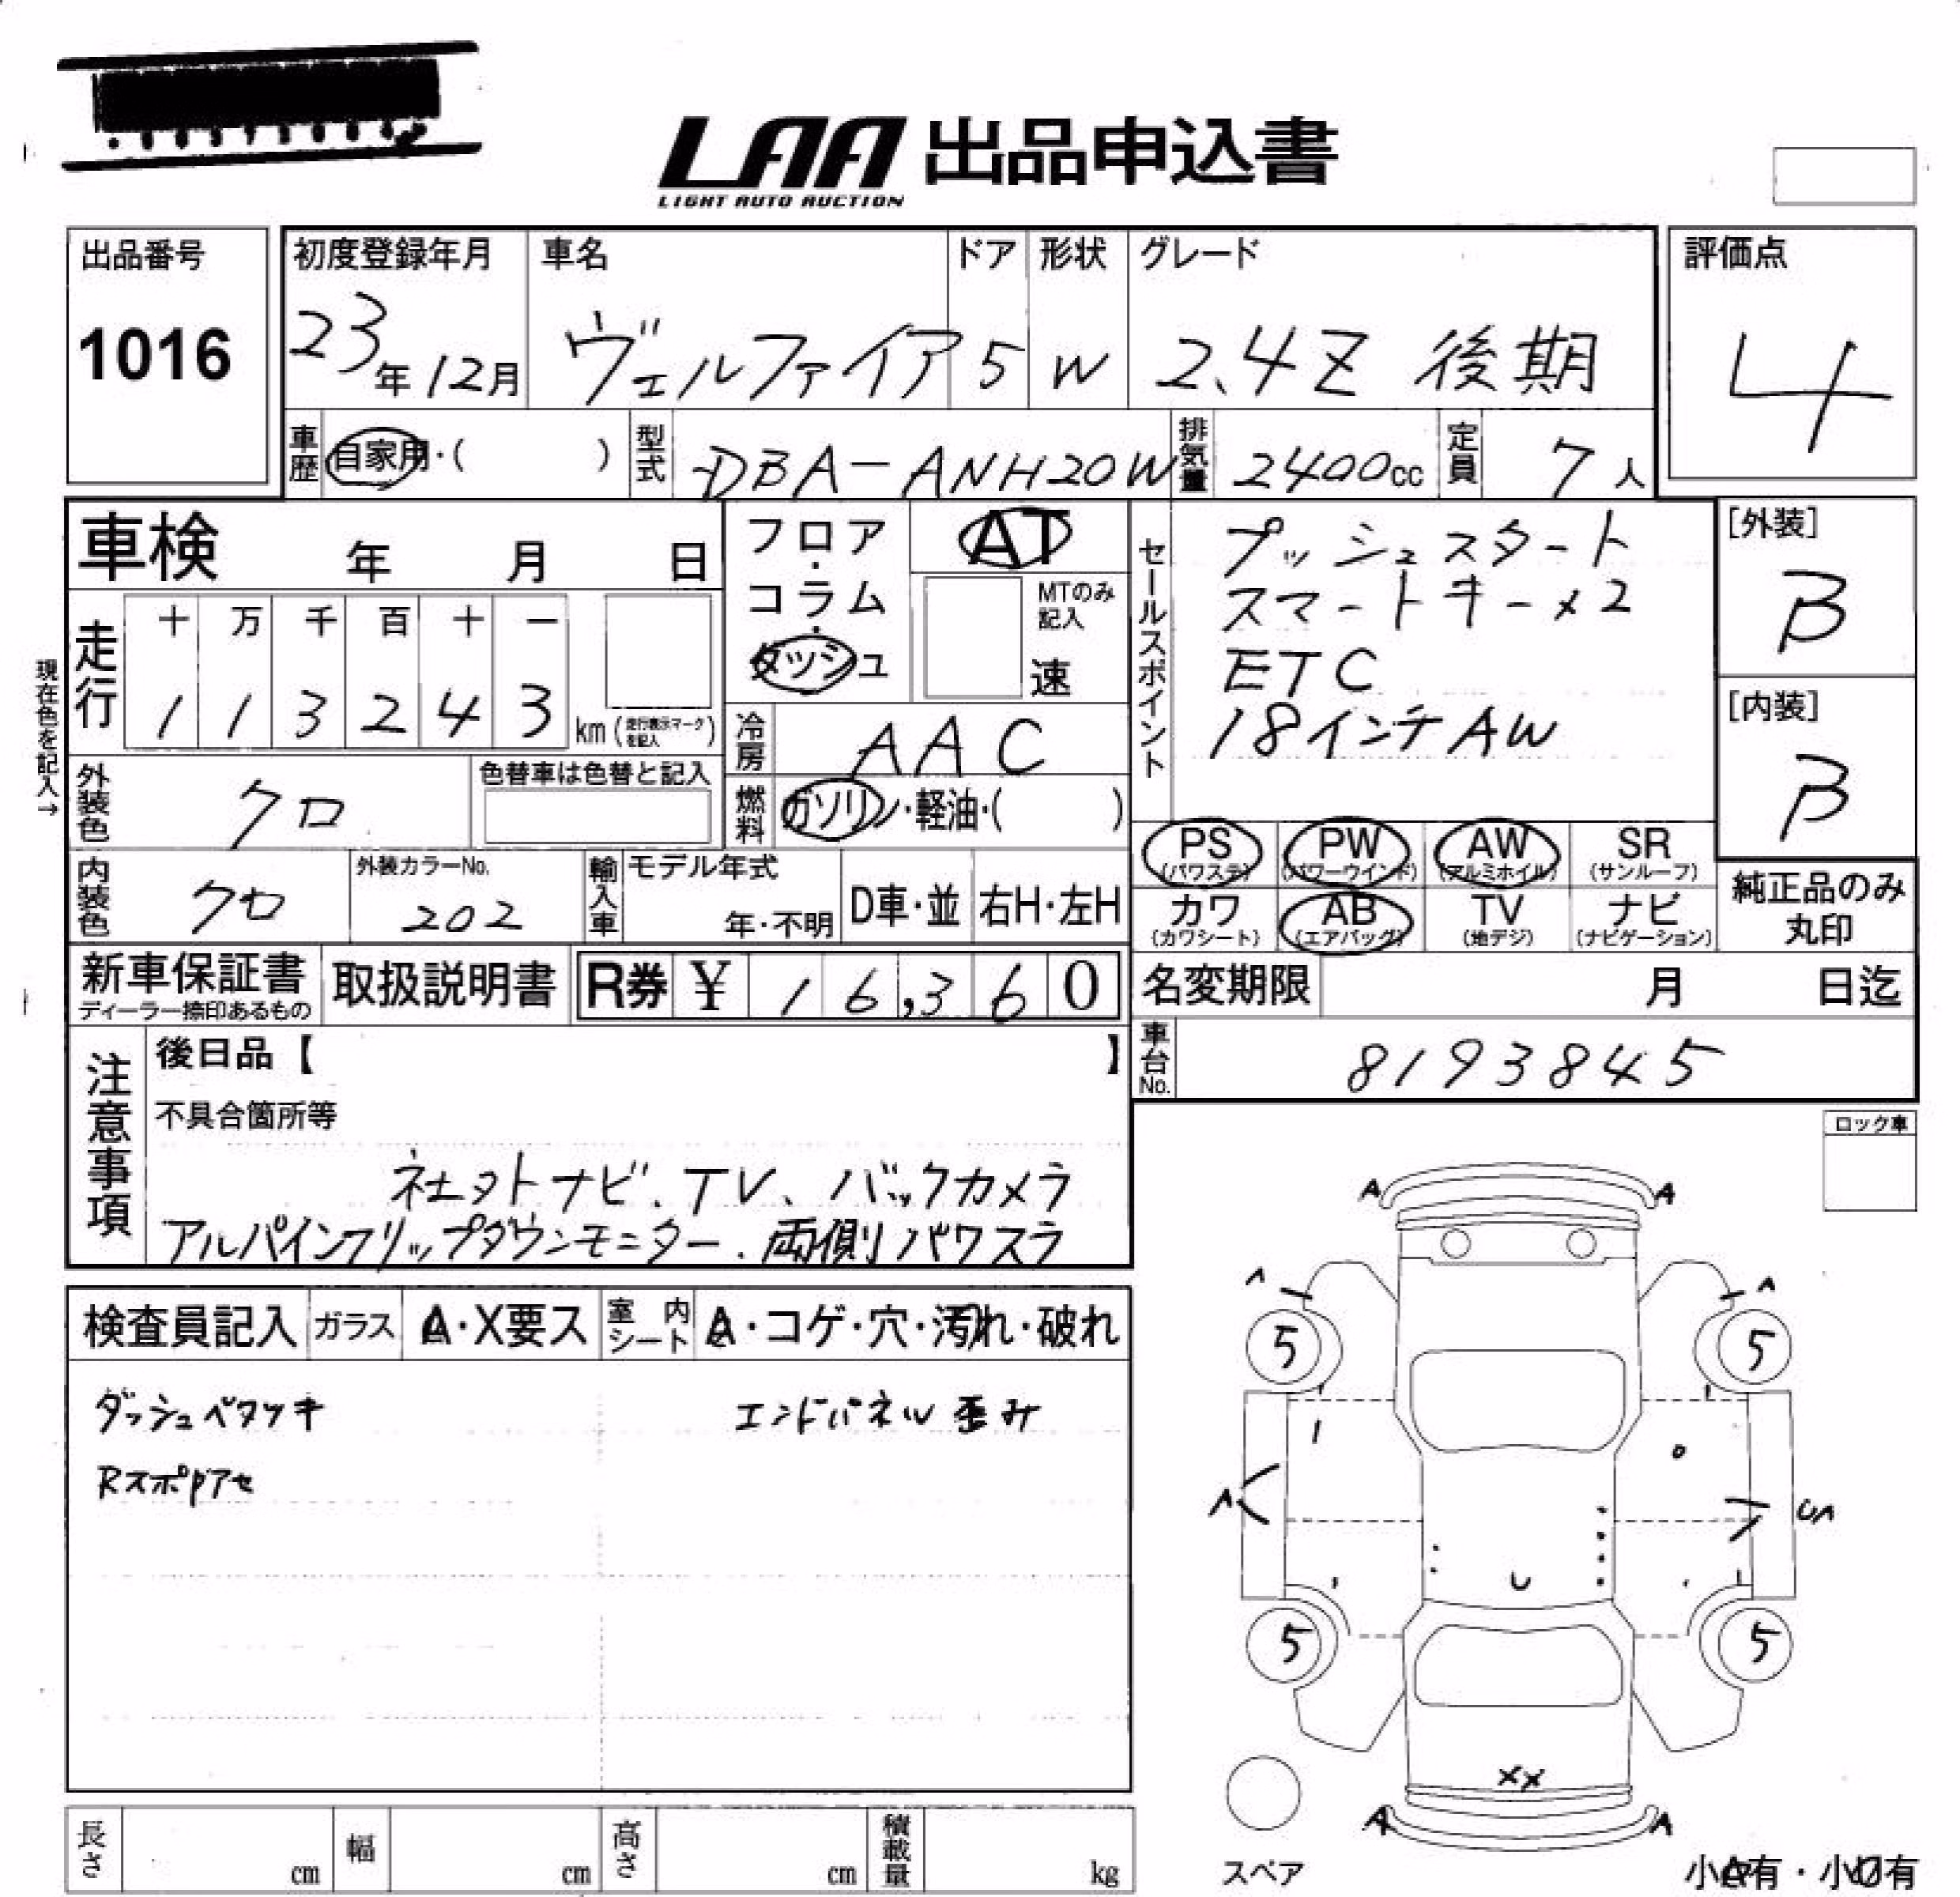 LAA 出品申込書
LIGHT AUTO AUCTION
出品番号
1016
初度登録年月
23年12月
車名
ヴェルファイア
ドア
5
形状
W
グレード
2.4Z 後期
評価点
4
車歴 自家用・( )
型式 DBA-ANH20W
排気量 2400cc
定員 7人
車検 年 月 日
現在色を記入→
走行
十 万 千 百 十 一
1 1 3 2 4 3 km (走行表示マークを記入)
フロア・コラム・ダッシュ
AT
MTのみ記入
速
冷房 AAC
燃料 ガソリン・軽油・( )
セールスポイント
プッシュスタート
スマートキー×2
ETC
18インチAW
[外装]
B
[内装]
B
外装色 クロ
色替車は色替と記入
内装色 クロ
外装カラーNo.
202
輸入車 モデル年式
年・不明
D車・並
右H・左H
PS (パワステ)
PW (パワーウインド)
AW (アルミホイル)
SR (サンルーフ)
カワ (カワシート)
AB (エアバッグ)
TV (地デジ)
ナビ (ナビゲーション)
純正品のみ
丸印
新車保証書
ディーラー捺印あるもの
取扱説明書
R券 ¥ 16,360
名変期限 月 日迄
車台No. 8193845
注意事項
後日品【 】
不具合箇所等
社外ナビ、TV、バックカメラ
アルパインフリップダウンモニター、両側パワスラ
ロック車
検査員記入
ガラス A・X要ス
室内シート A・コゲ・穴・汚れ・破れ
ダッシュベタツキ
エンドパネル歪み
RスポPアセ
A A
A A
5 5
A UA
U
5 5
XX
A A
スペア
小A有・小U有
長さ cm
幅 cm
高さ cm
積載量 kg